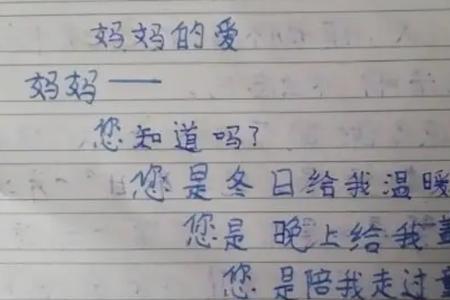 妈妈的爱
妈妈——
您知道吗?
您是冬日给我温暖
您是晚上给我
您是陪我走过